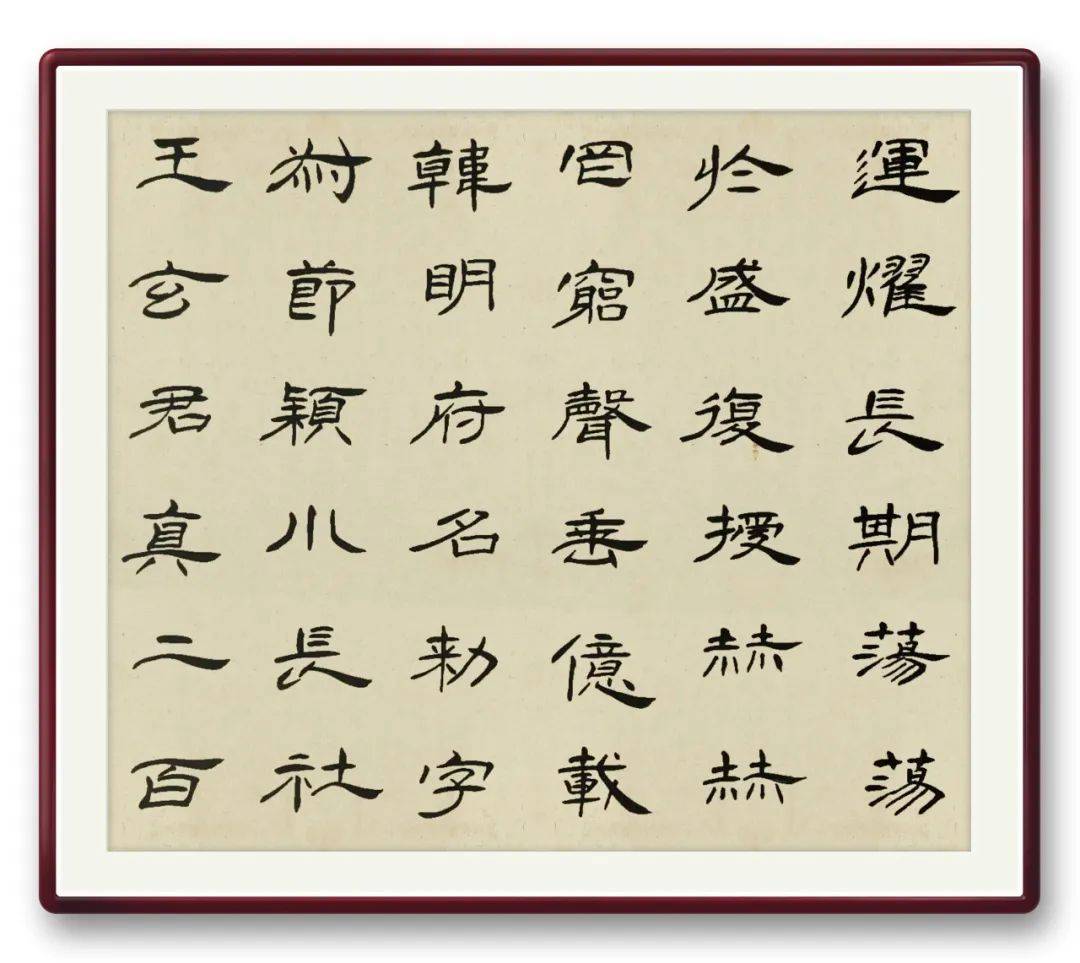 運耀長期蕩蕩
於盛復授赫赫
罔窮聲垂億載
韓明府名勑字
叔節潁川長社
王玄君真二百